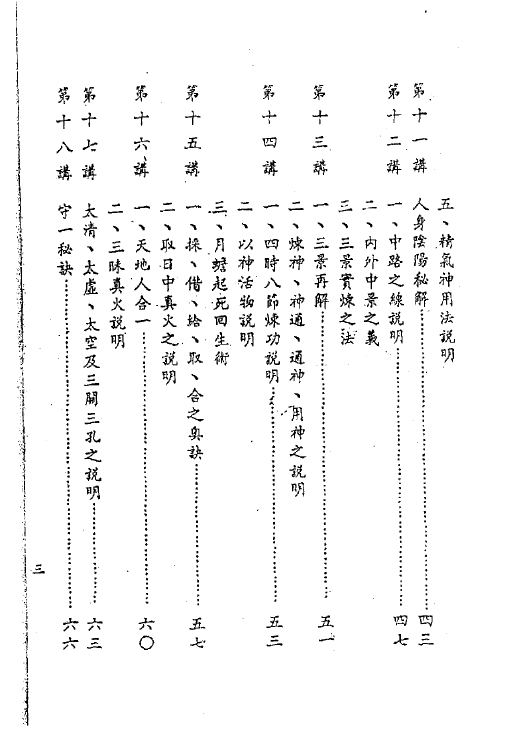 五、精氣神用法說明
第十一講 人身陰陽秘解……四三
第十二講 一、中路之線說明……四七
二、內外中景之義
三、三景實煉之法
第十三講 一、三景再解……五一
二、煉神、神通、通神、用神之說明
第十四講 一、四時八節煉功說明……五三
二、以神活物說明
三、月蟾起死回生術
第十五講 一、採、借、給、取、合之奧訣……五七
二、取日中真火之說明
第十六講 一、天地人合一……六〇
二、三昧真火說明
第十七講 太清、太虛、太空及三關三孔之說明……六三
第十八講 守一秘訣……六六
三